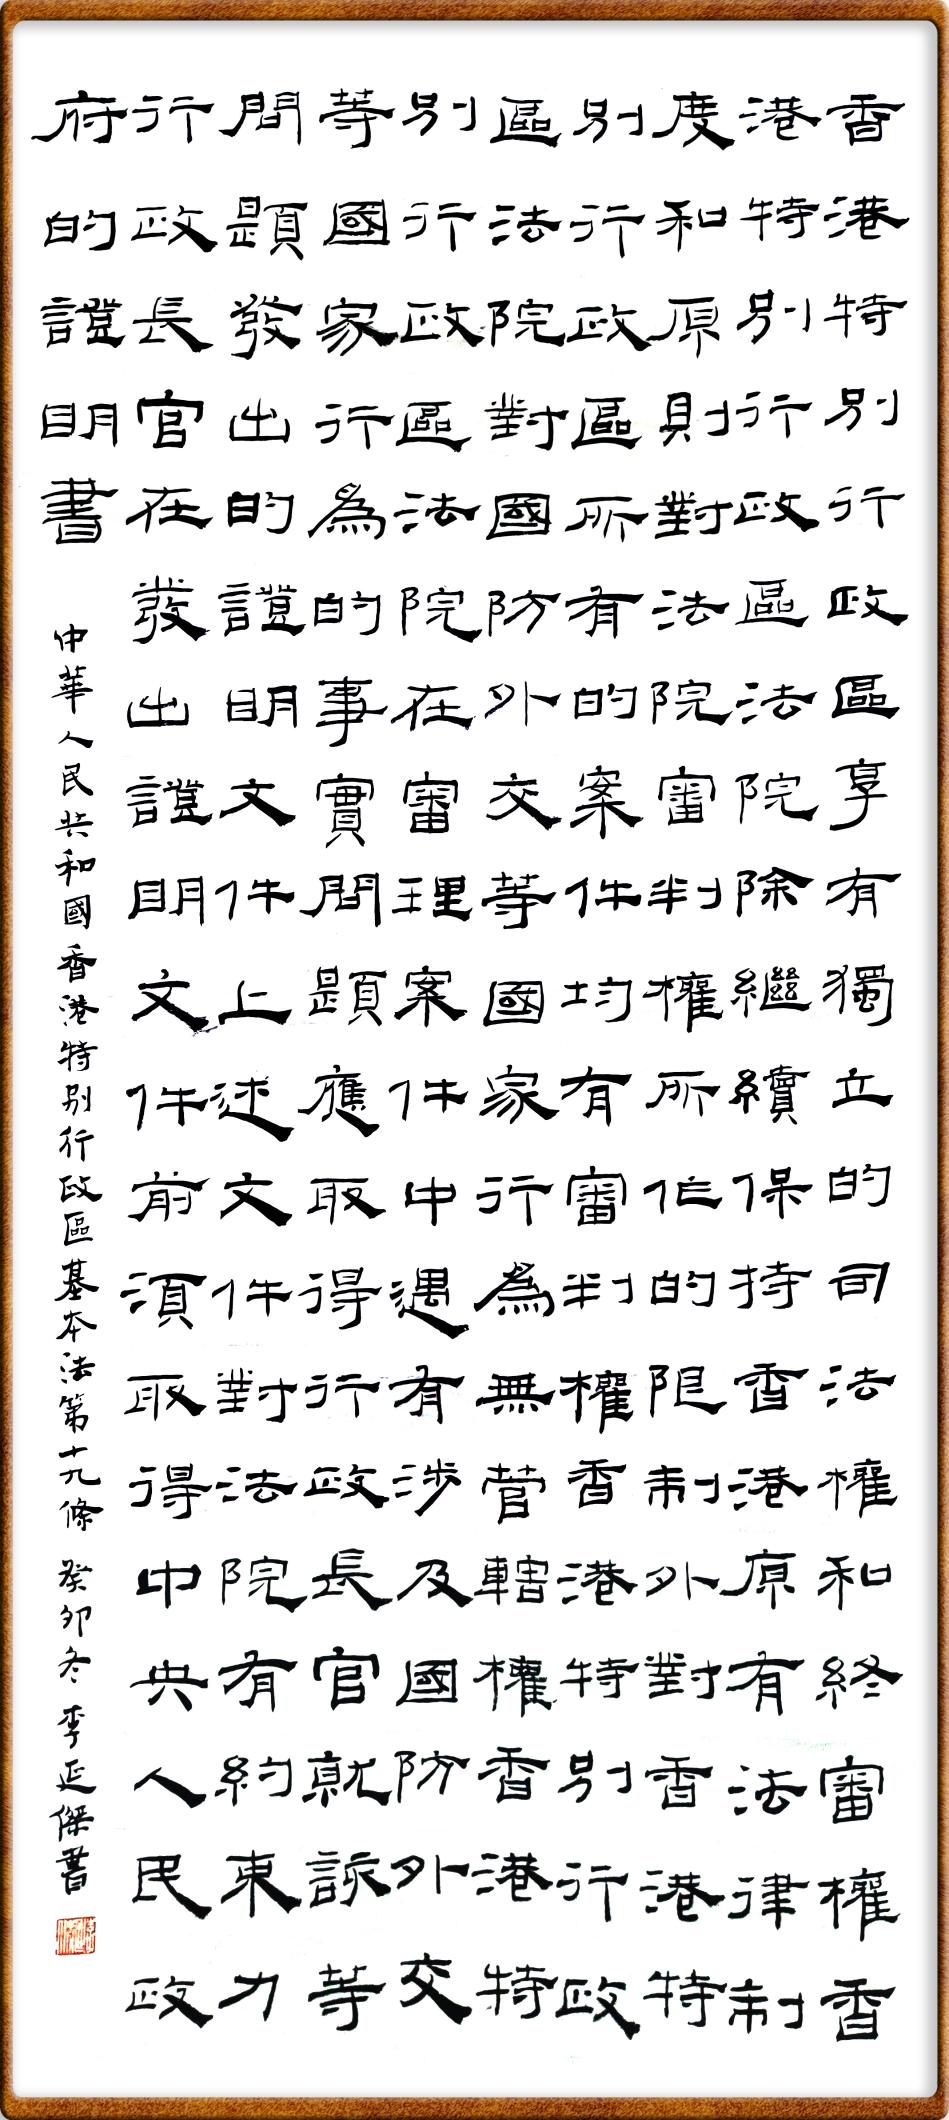 香港特別行政區享有獨立的司法權和終審權香
港特別行政區法院除繼續保持香港原有法律制
度和原則對法院審判權所作的限制外對香港特
別行政區所有的案件均有審判權香港特別行政
區法院對國防外交等國家行為無管轄權香港特
別行政區法院在審理案件中遇有涉及國防外交
等國家行為的事實問題應取得行政長官就該等
問題發出的證明文件上述文件對法院有約束力
行政長官在發出證明文件前須取得中央人民政
府的證明書
中華人民共和國香港特別行政區基本法第十九條 癸卯冬 李延傑書